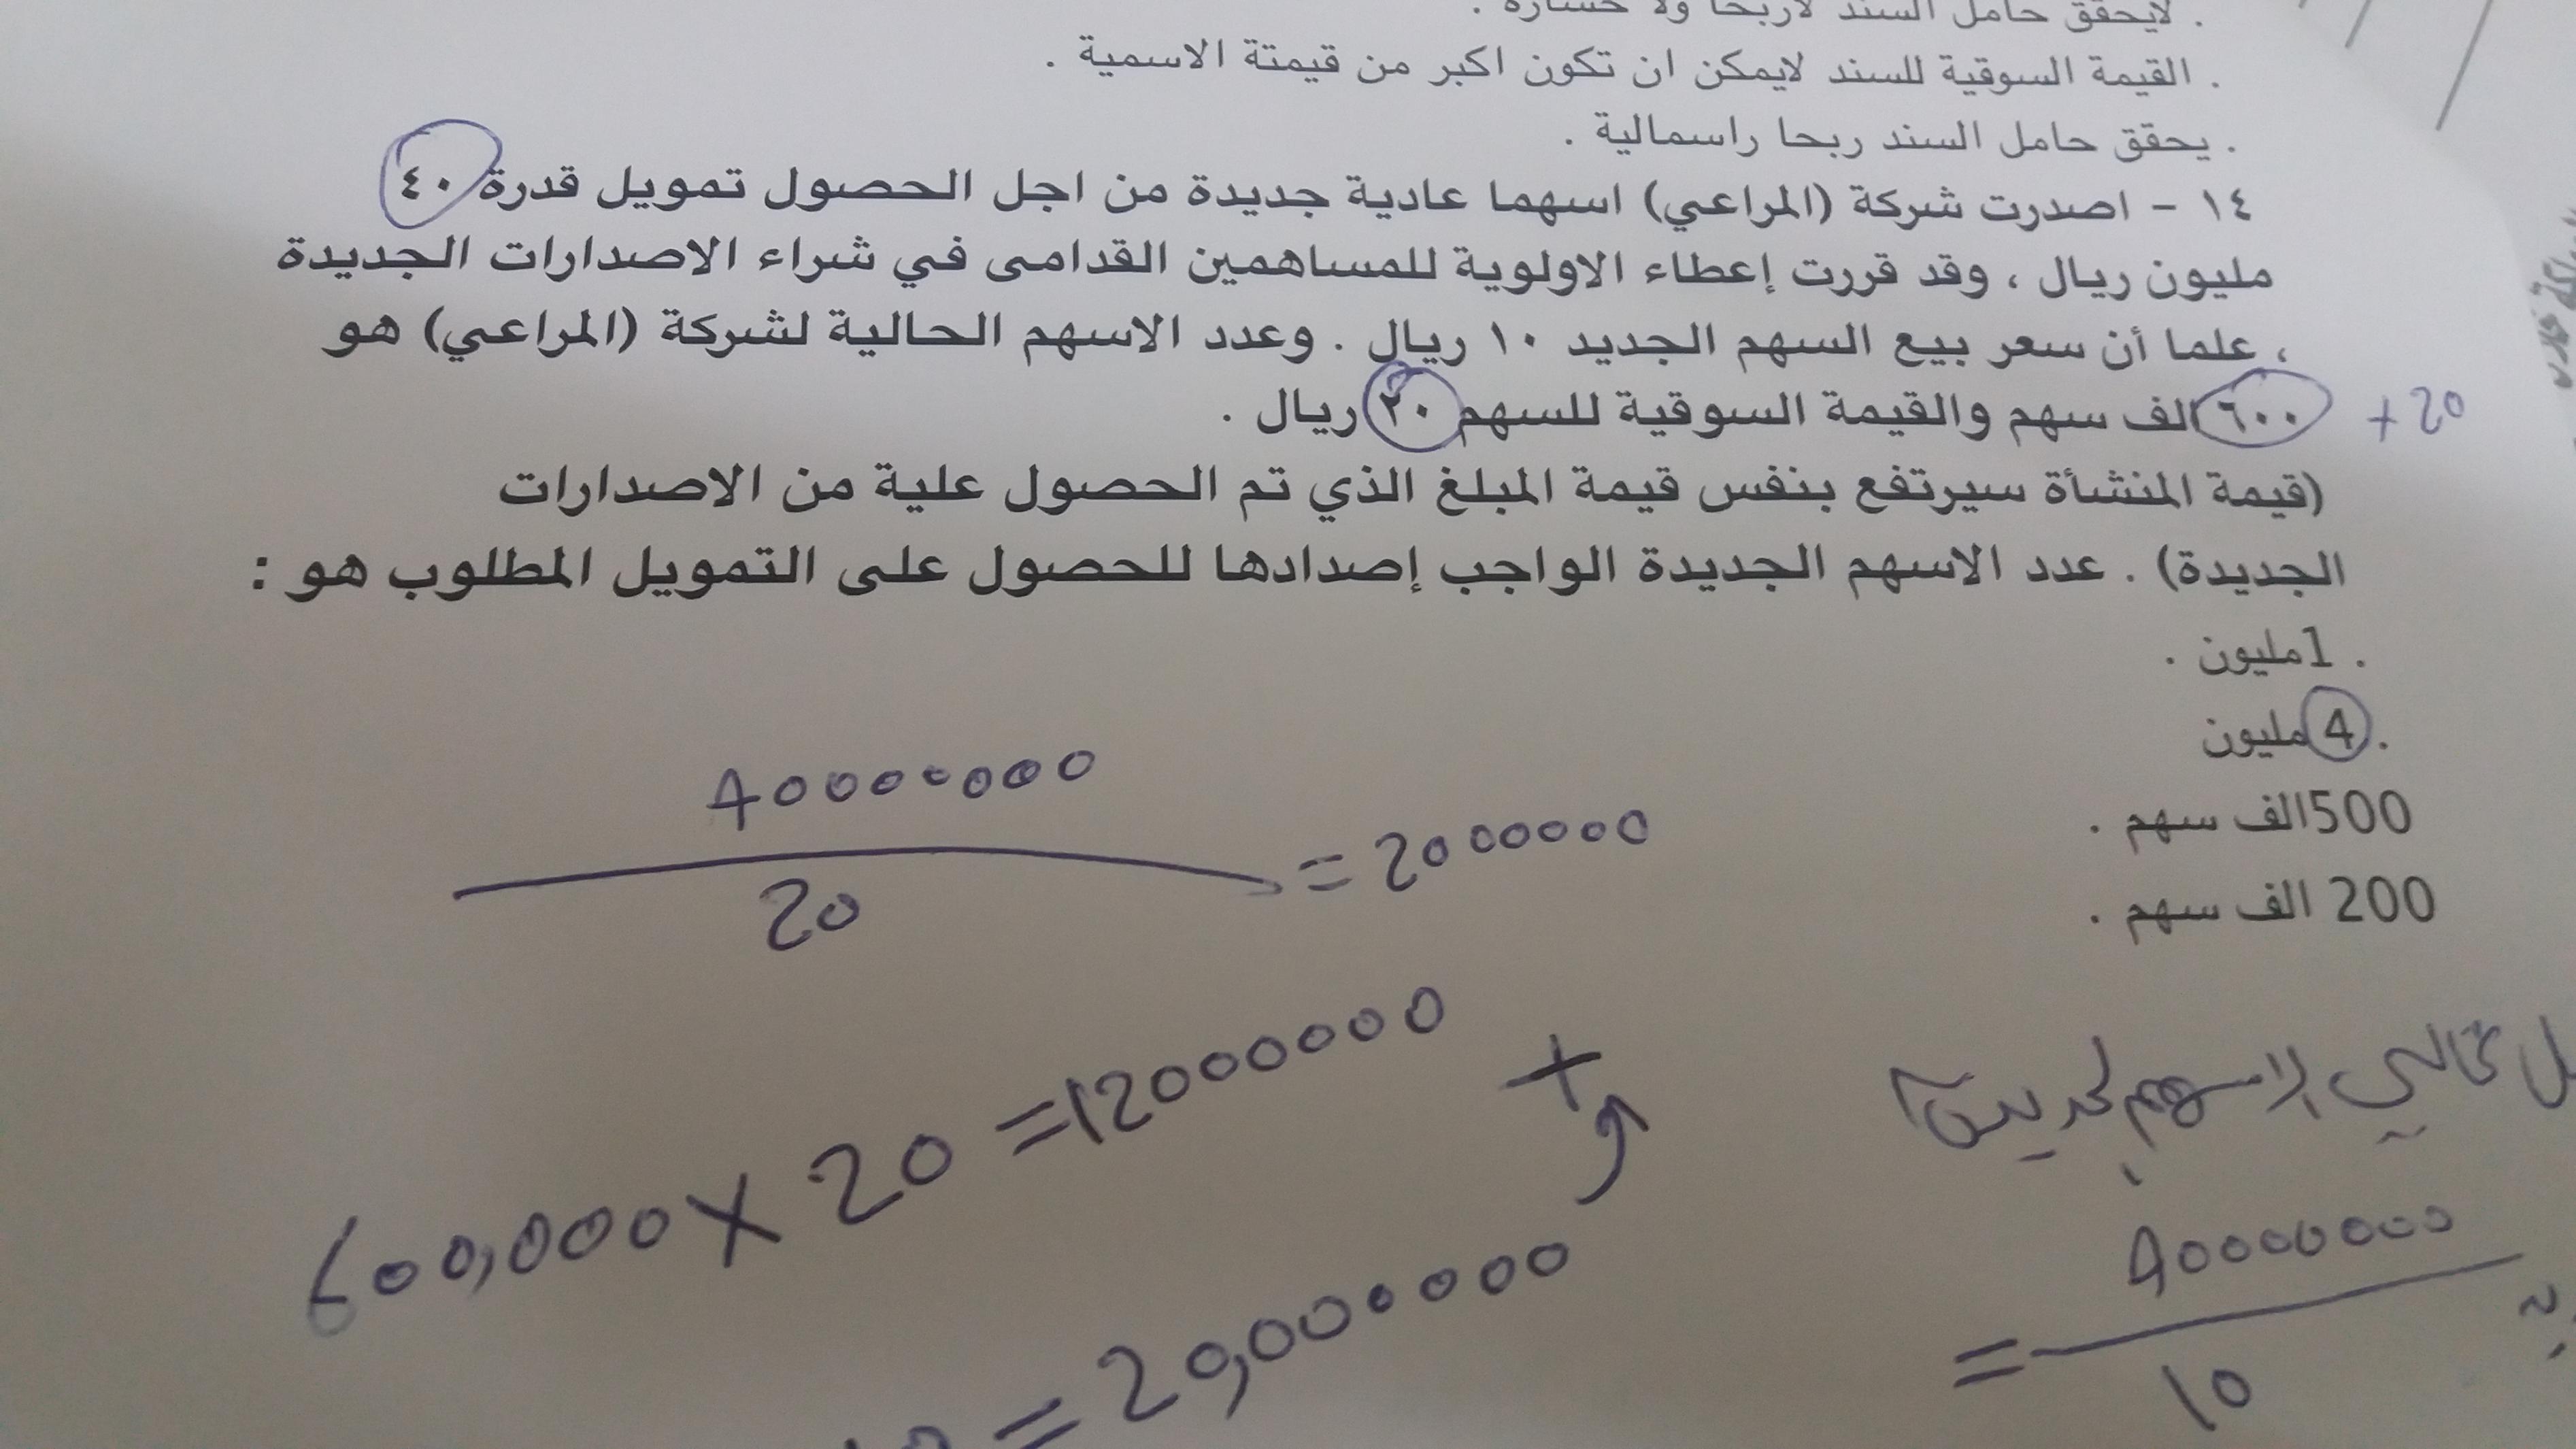 . لايحقق حامل السند لاربحا ولا خسارة .
. القيمة السوقية للسند لايمكن ان تكون اكبر من قيمتة الاسمية .
. يحقق حامل السند ربحا راسمالية .
١٤ - اصدرت شركة (المراعي) اسهما عادية جديدة من اجل الحصول تمويل قدرة ٤٠
مليون ريال ، وقد قررت إعطاء الاولوية للمساهمين القدامى في شراء الاصدارات الجديدة
، علما أن سعر بيع السهم الجديد ١٠ ريال . وعدد الاسهم الحالية لشركة (المراعي) هو
٦٠٠ الف سهم والقيمة السوقية للسهم ٢٠ ريال .
+ 20
(قيمة المنشأة سيرتفع بنفس قيمة المبلغ الذي تم الحصول علية من الاصدارات
الجديدة) . عدد الاسهم الجديدة الواجب إصدادها للحصول على التمويل المطلوب هو :
. 1مليون .
. 4مليون
500الف سهم .
200 الف سهم .
40000000
20
= 2000000
600,000 X 20 = 12000000
+
= 20,000000
الاسهم الجديدة
40000000
10
=